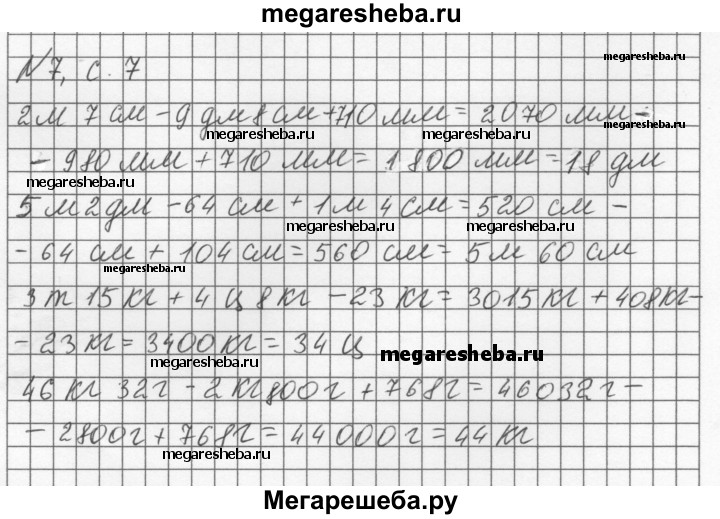 megaresheba.ru
№7, с. 7
megaresheba.ru
2 м 7 см - 9 дм 8 см + 710 мм = 2070 мм -
megaresheba.ru
megaresheba.ru
megaresheba.ru
- 980 мм + 710 мм = 1800 мм = 18 дм
megaresheba.ru
5 м 2 дм - 64 см + 1 м 4 см = 520 см -
megaresheba.ru
megaresheba.ru
- 64 см + 104 см = 560 см = 5 м 60 см
megaresheba.ru
3 т 15 кг + 4 ц 8 кг - 23 кг = 3015 кг + 408 кг -
- 23 кг = 3400 кг = 34 ц
megaresheba.ru
megaresheba.ru
46 кг 32 г - 2 кг 800 г + 768 г = 46032 г -
- 2800 г + 768 г = 44000 г = 44 кг
megaresheba.ru
Мегарешеба.ру